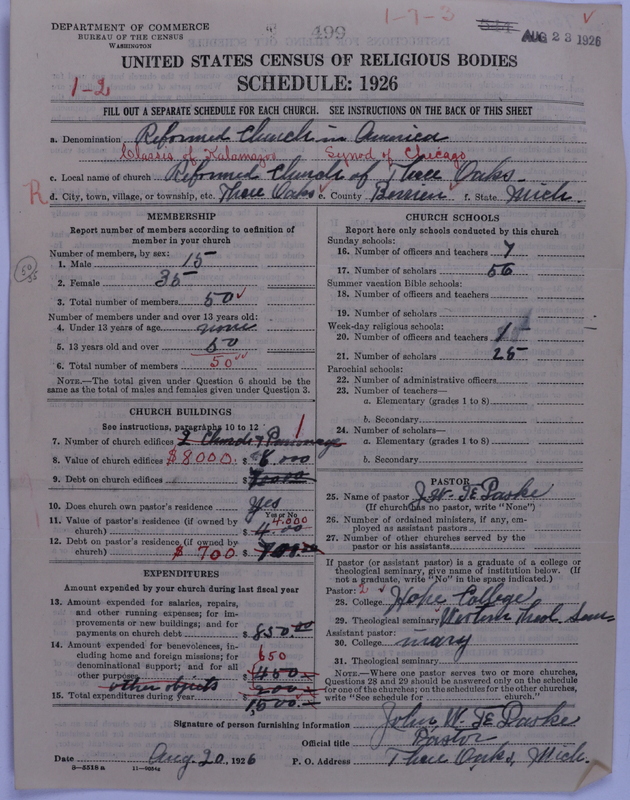 1-7-3
DEPARTMENT OF COMMERCE
BUREAU OF THE CENSUS
WASHINGTON
499
AUG 23 1926
UNITED STATES CENSUS OF RELIGIOUS BODIES
1-2
SCHEDULE: 1926
FILL OUT A SEPARATE SCHEDULE FOR EACH CHURCH. SEE INSTRUCTIONS ON THE BACK OF THIS SHEET
a. Denomination Reformed Church in America
Classis of Kalamazoo Synod of Chicago
c. Local name of church Reformed Church of Three Oaks
R d. City, town, village, or township, etc. Three Oaks e. County Berrien f. State Mich.
MEMBERSHIP
Report number of members according to definition of member in your church
Number of members, by sex:
1. Male 15
2. Female 35
3. Total number of members 50
Number of members under and over 13 years old:
4. Under 13 years of age none
5. 13 years old and over 50
6. Total number of members 50
NOTE.—The total given under Question 6 should be the same as the total of males and females given under Question 3.
CHURCH BUILDINGS
See instructions, paragraphs 10 to 12
7. Number of church edifices 2 Church & Parsonage 1
8. Value of church edifices $8000. $ 8,000
9. Debt on church edifices $
10. Does church own pastor's residence Yes
Yes or No
11. Value of pastor's residence (if owned by church) 4,000 $ 4,000
12. Debt on pastor's residence (if owned by church) $ 700 $ 700.00
EXPENDITURES
Amount expended by your church during last fiscal year
13. Amount expended for salaries, repairs, and other running expenses; for improvements or new buildings; and for payments on church debt $ 850.00
14. Amount expended for benevolences, including home and foreign missions; for denominational support; and for all other purposes 650 $ 450.00
other objects 200.00
15. Total expenditures during year $ 1,500.00
CHURCH SCHOOLS
Report here only schools conducted by this church
Sunday schools:
16. Number of officers and teachers 7
17. Number of scholars 56
Summer vacation Bible schools:
18. Number of officers and teachers
19. Number of scholars
Week-day religious schools:
20. Number of officers and teachers 1
21. Number of scholars 25
Parochial schools:
22. Number of administrative officers
23. Number of teachers—
a. Elementary (grades 1 to 8)
b. Secondary
24. Number of scholars—
a. Elementary (grades 1 to 8)
b. Secondary
PASTOR
25. Name of pastor J. W. Te Paske
(If church has no pastor, write "None")
26. Number of ordained ministers, if any, employed as assistant pastors
27. Number of other churches served by the pastor or his assistants
If pastor (or assistant pastor) is a graduate of a college or theological seminary, give name of institution below. (If not a graduate, write "No" in the space indicated.)
Pastor: 2
28. College Hope College
29. Theological seminary Western Theol. Sem-
Assistant pastor:
30. College inary
31. Theological seminary
NOTE.—Where one pastor serves two or more churches, Questions 28 and 29 should be answered only on the schedule for one of the churches; on the schedules for the other churches, write "See schedule for church."
Signature of person furnishing information John W. Te Paske
Official title Pastor
Date Aug. 20, 1926 P. O. Address Three Oaks, Mich.
8-5518a 11-9064a